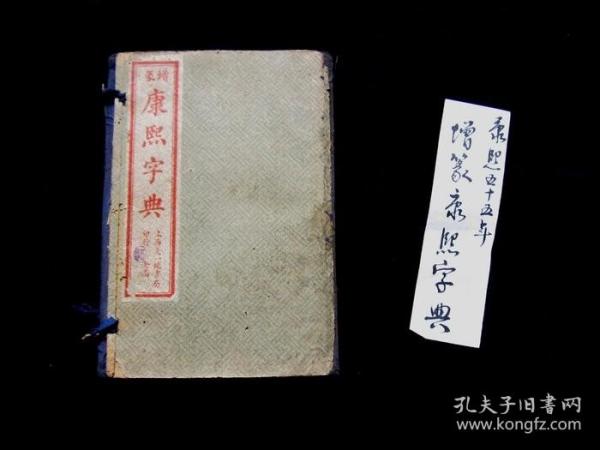 增篆
康熙字典
上海
書局
印行
康熙五十五年
增篆康熙字典
孔夫子旧书网
www.kongfz.com